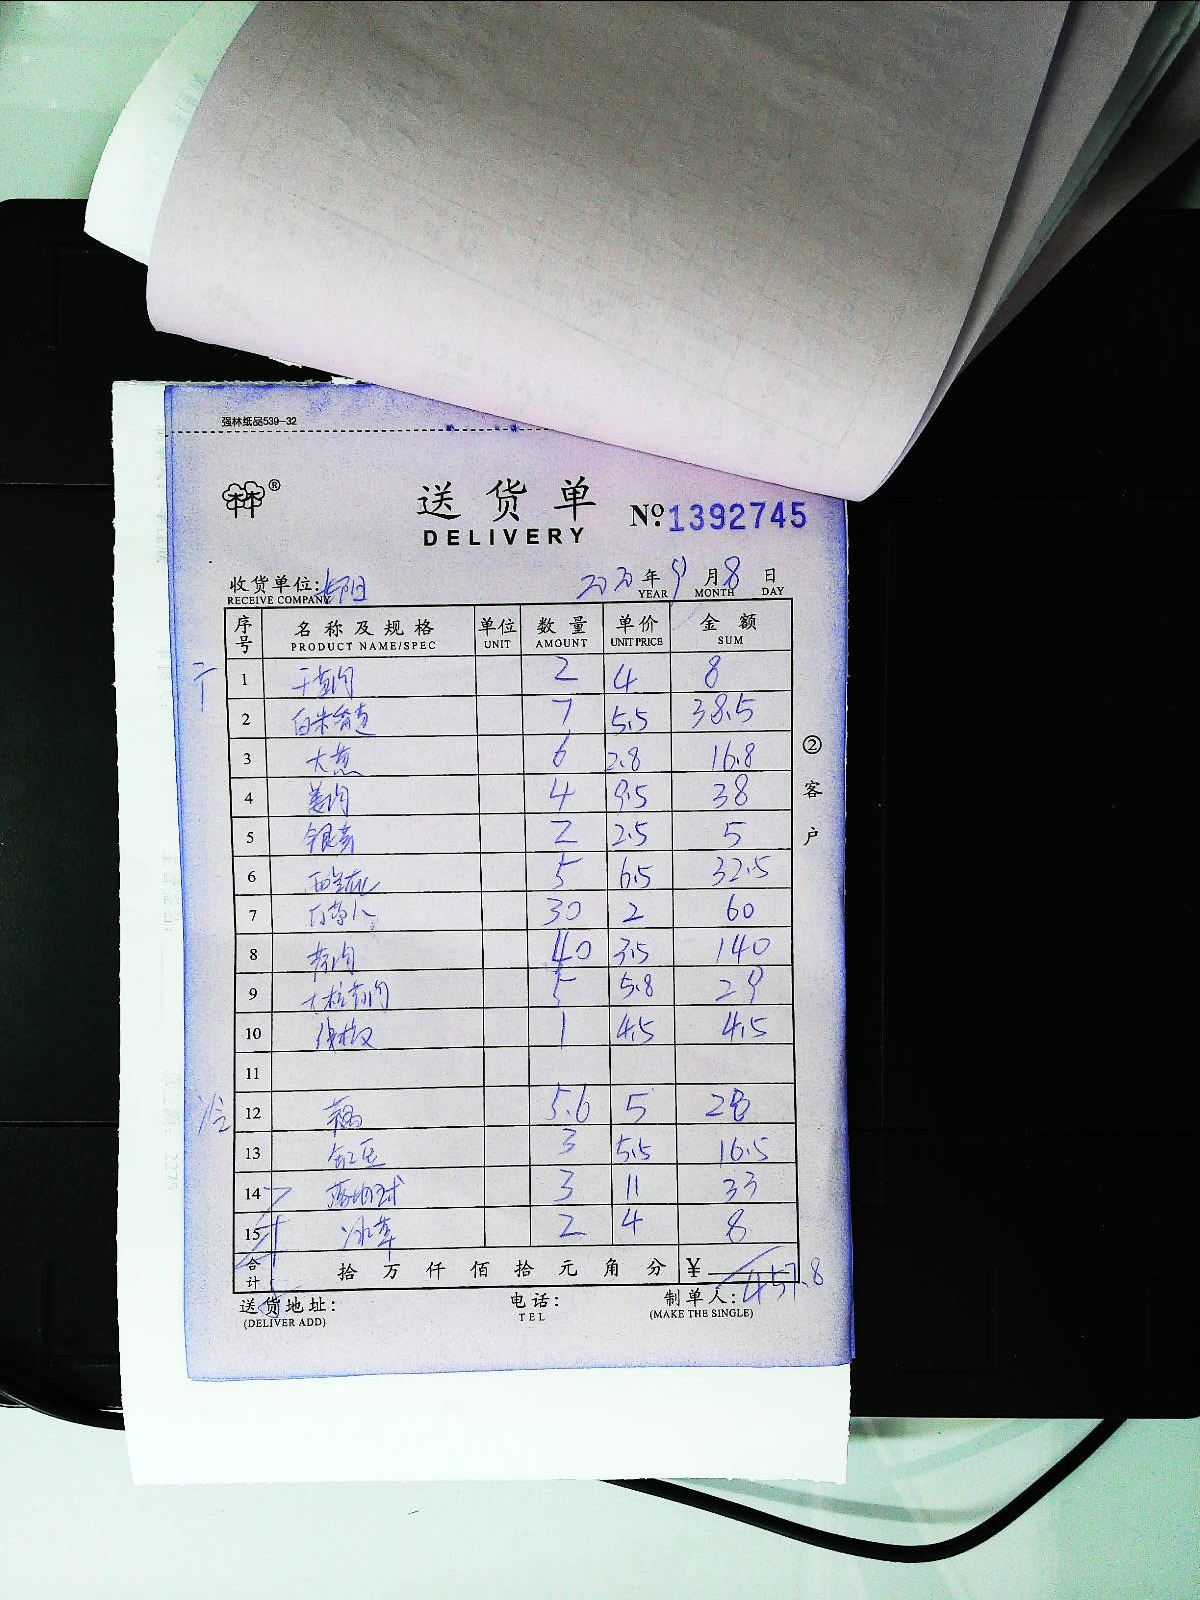 强林纸品539-32
®
送货单
DELIVERY
№ 1392745
收货单位:
RECEIVE COMPANY
2020年9月8日
YEAR MONTH DAY
序号 名称及规格 单位 数量 单价 金额
PRODUCT NAME/SPEC UNIT AMOUNT UNIT PRICE SUM
1 2 4 8
2 7 5.5 38.5
3 大葱 6 2.8 16.8
4 姜肉 4 9.5 38
5 银芽 2 2.5 5
6 西兰花 5 6.5 32.5
7 30 2 60
8 40 3.5 140
9 5 5.8 29
10 1 4.5 4.5
11
12 藕 5.6 5 28
13 缸豆 3 5.5 16.5
14 3 11 33
15 冰草 2 4 8
合计 拾万仟佰拾元角分 ¥ 457.8
送货地址: 电话: 制单人:
(DELIVER ADD) TEL (MAKE THE SINGLE)
②客户